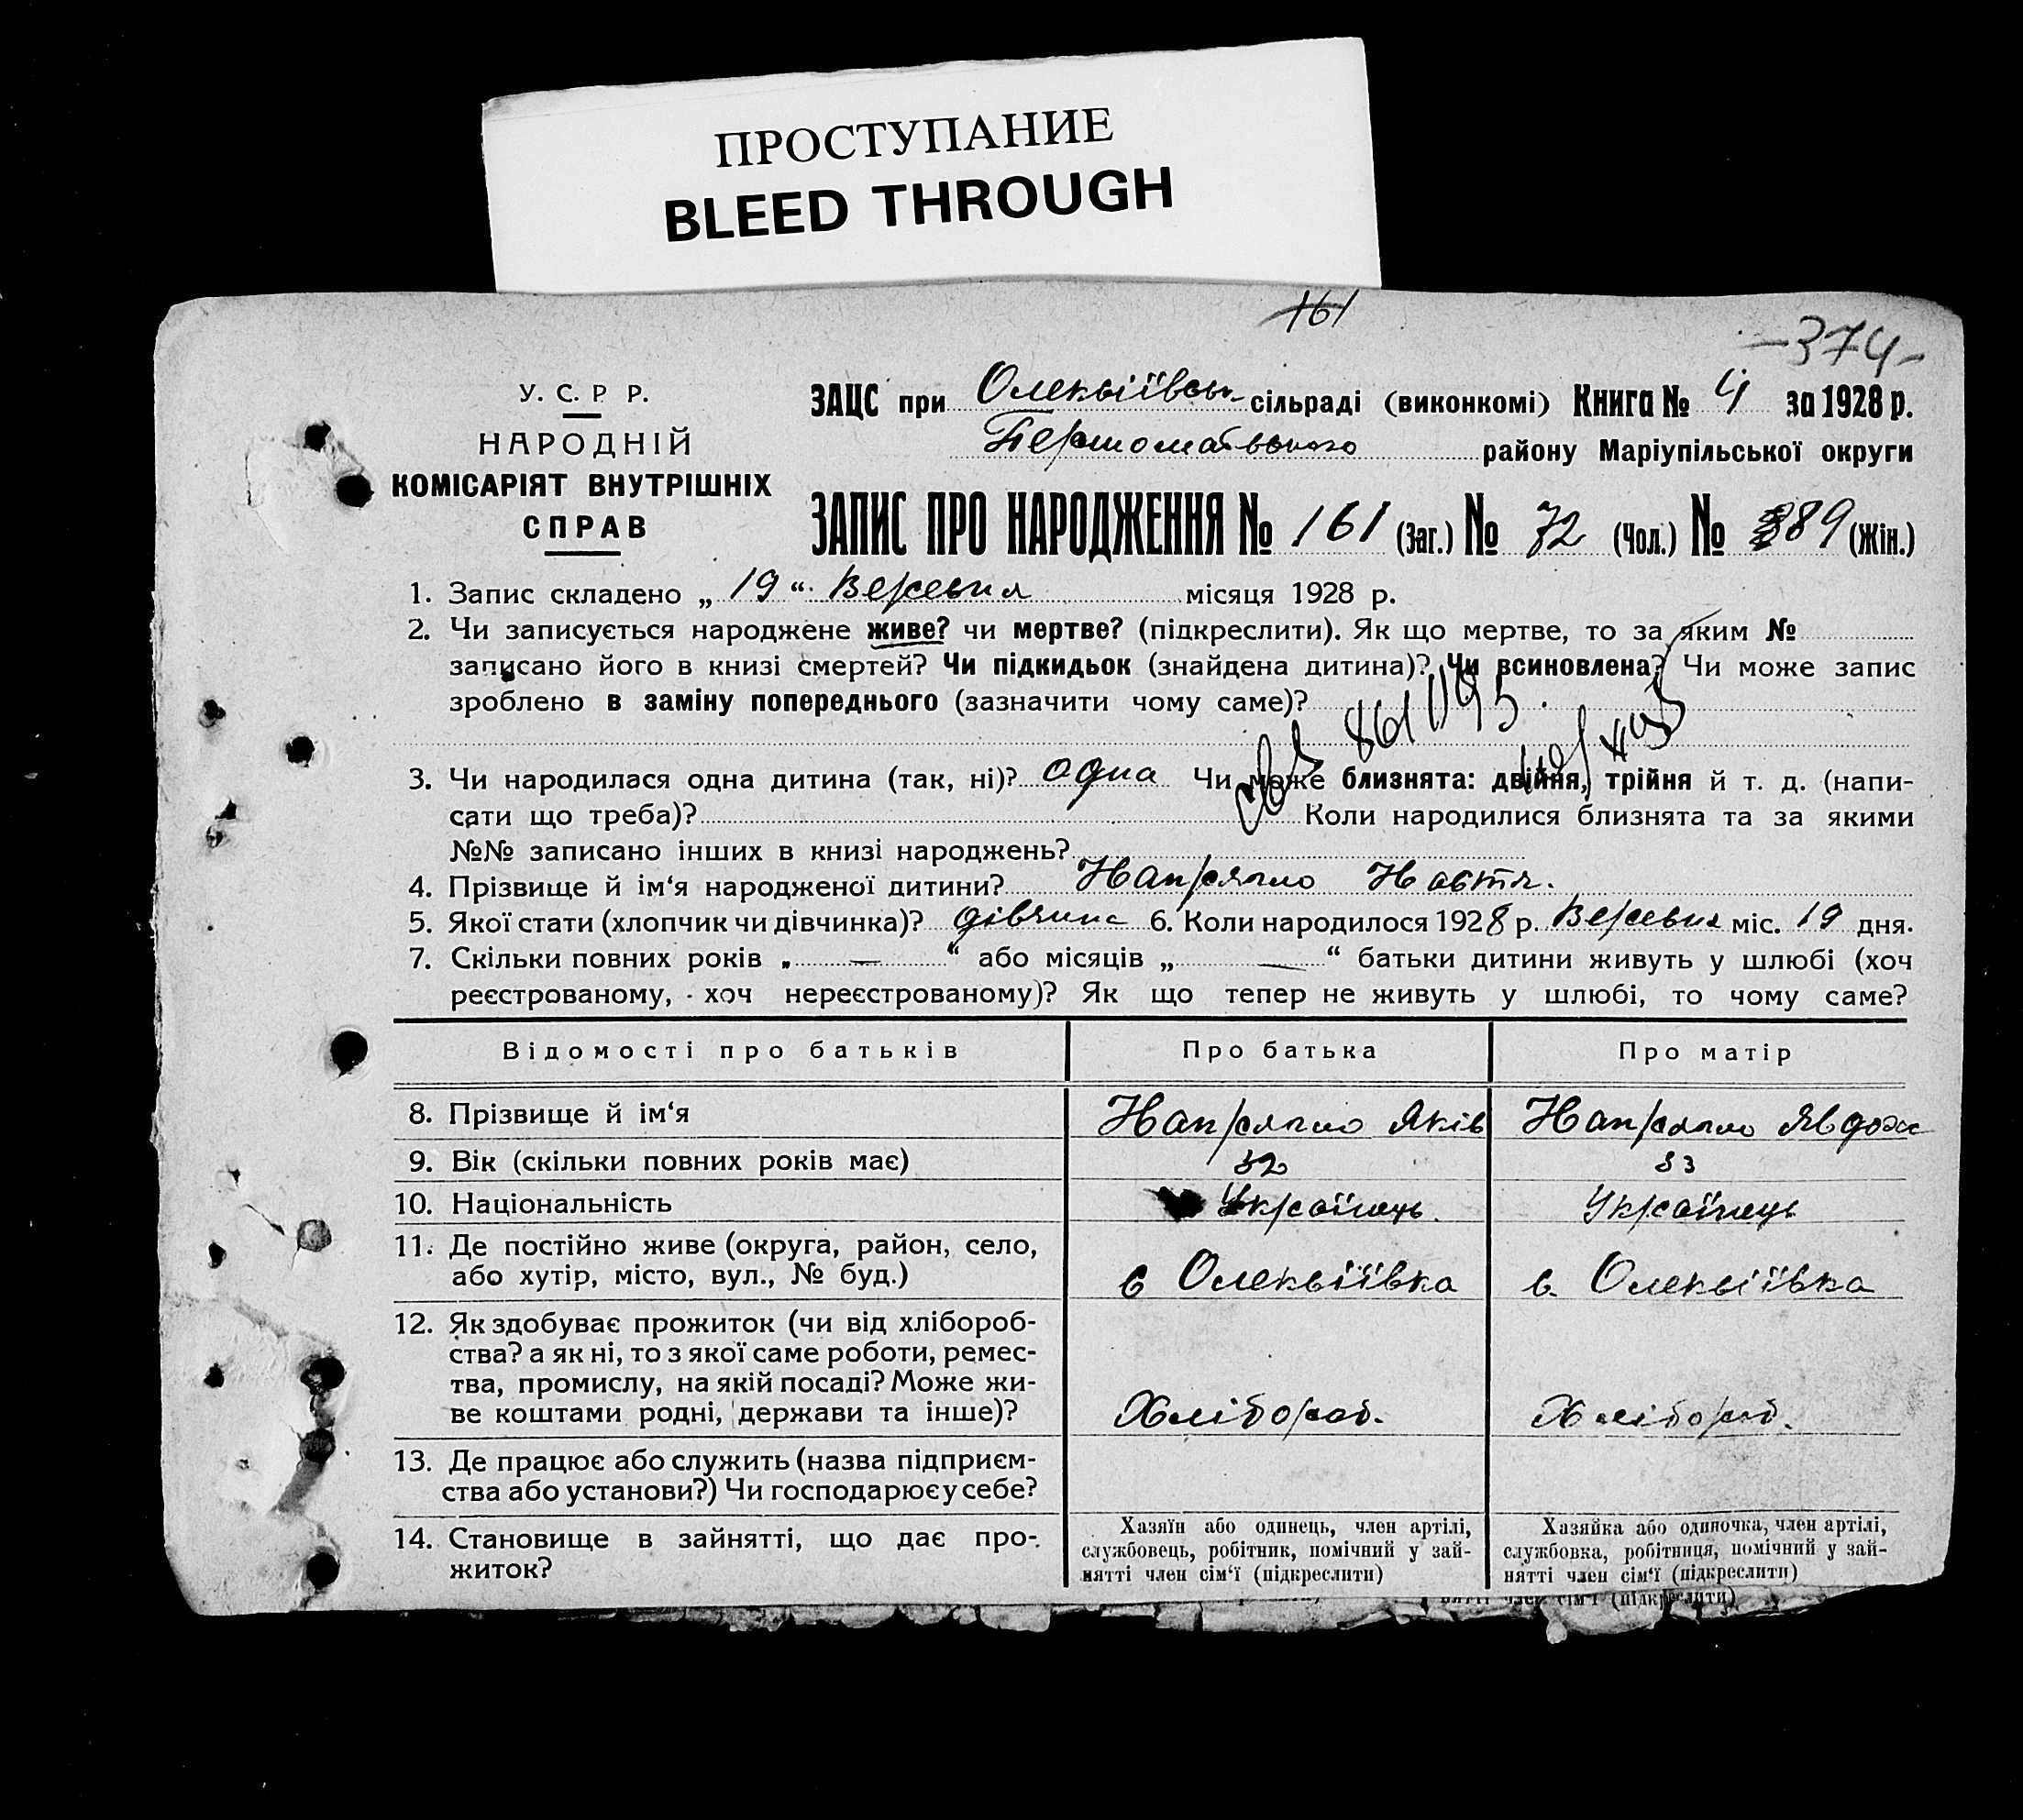 ПРОСТУПАНИЕ
BLEED THROUGH
161
-374-
У. С. Р Р.
НАРОДНІЙ
КОМІСАРІЯТ ВНУТРІШНІХ
СПРАВ
ЗАЦС при Олексіївськ. сільраді (виконкомі) Книга № 4 за 1928 р.
Першомайського району Маріупільської округи
ЗАПИС ПРО НАРОДЖЕННЯ № 161 (Заг.) № 72 (Чол.) № 89 (Жін.)
1. Запис складено „ 19 “ Вересня місяця 1928 р.
2. Чи записується народжене живе? чи мертве? (підкреслити). Як що мертве, то за яким №
записано його в книзі смертей? Чи підкидьок (знайдена дитина)? Чи всиновлена? Чи може запис
зроблено в заміну попереднього (зазначити чому саме)?
3. Чи народилася одна дитина (так, ні)? одна Чи може близнята: двійня, трійня й т. д. (напи-
сати що треба)? Коли народилися близнята та за якими
№№ записано інших в книзі народжень?
4. Прізвище й ім‘я народженої дитини? Напрягло Настя.
5. Якої стати (хлопчик чи дівчинка)? дівчина 6. Коли народилося 1928 р. Вересня міс. 19 дня.
7. Скільки повних років „ — “ або місяців „ — “ батьки дитини живуть у шлюбі (хоч
реєстрованому, хоч нереєстрованому)? Як що тепер не живуть у шлюбі, то чому саме?
Відомості про батьків Про батька Про матір
8. Прізвище й ім‘я Напрягло Яків Напрягло Явдоки
9. Вік (скільки повних років має) 32 33
10. Національність Українець. Українець
11. Де постійно живе (округа, район, село,
або хутір, місто, вул., № буд.) с Олексіївка с. Олексіївка
12. Як здобуває прожиток (чи від хлібороб-
ства? а як ні, то з якої саме роботи, ремес-
тва, промислу, на якій посаді? Може жи-
ве коштами родні, держави та інше)? Хлібороб. Хлібороб.
13. Де працює або служить (назва підприєм-
ства або установи?) Чи господарює у себе?
14. Становище в зайнятті, що дає про-
житок?
Хазяїн або одинець, член артілі,
службовець, робітник, помічний у зай-
нятті член сім‘ї (підкреслити)
Хазяйка або одиночка, член артілі,
службовка, робітниця, помічний у зай-
нятті член сім‘ї (підкреслити)
нятті член сім‘ї (підкреслити)